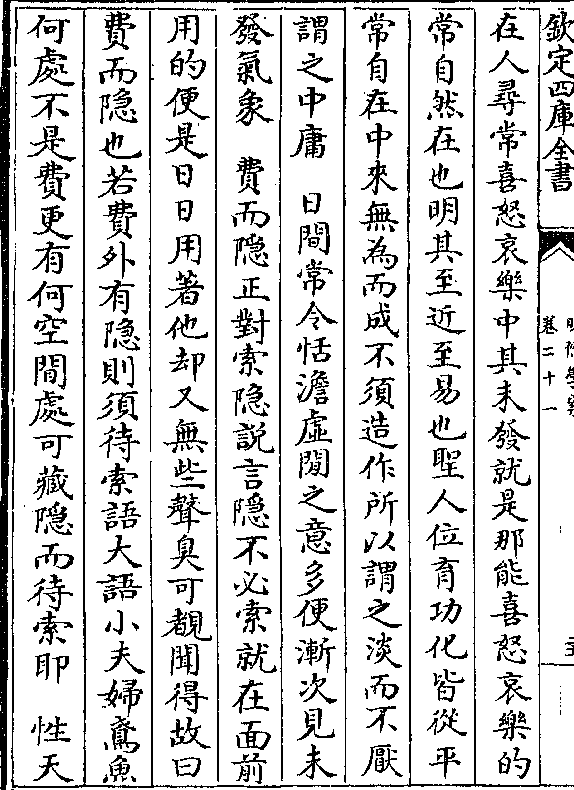 欽定四庫全書
明儒學案
卷二十一
在人尋常喜怒哀樂中其未發就是那能喜怒哀樂的
常自然在也明其至近至易也聖人位育功化皆從平
常自在中來無為而成不須造作所以謂之淡而不厭
謂之中庸　日間常令恬澹虛閒之意多便漸次見未
發氣象　費而隱正對索隱說言隱不必索就在面前
用的便是日日用著他却又無些聲臭可覩聞得故曰
費而隱也若費外有隱則須待索語大語小夫婦鳶魚
何處不是費更有何空間處可藏隱而待索耶　性天